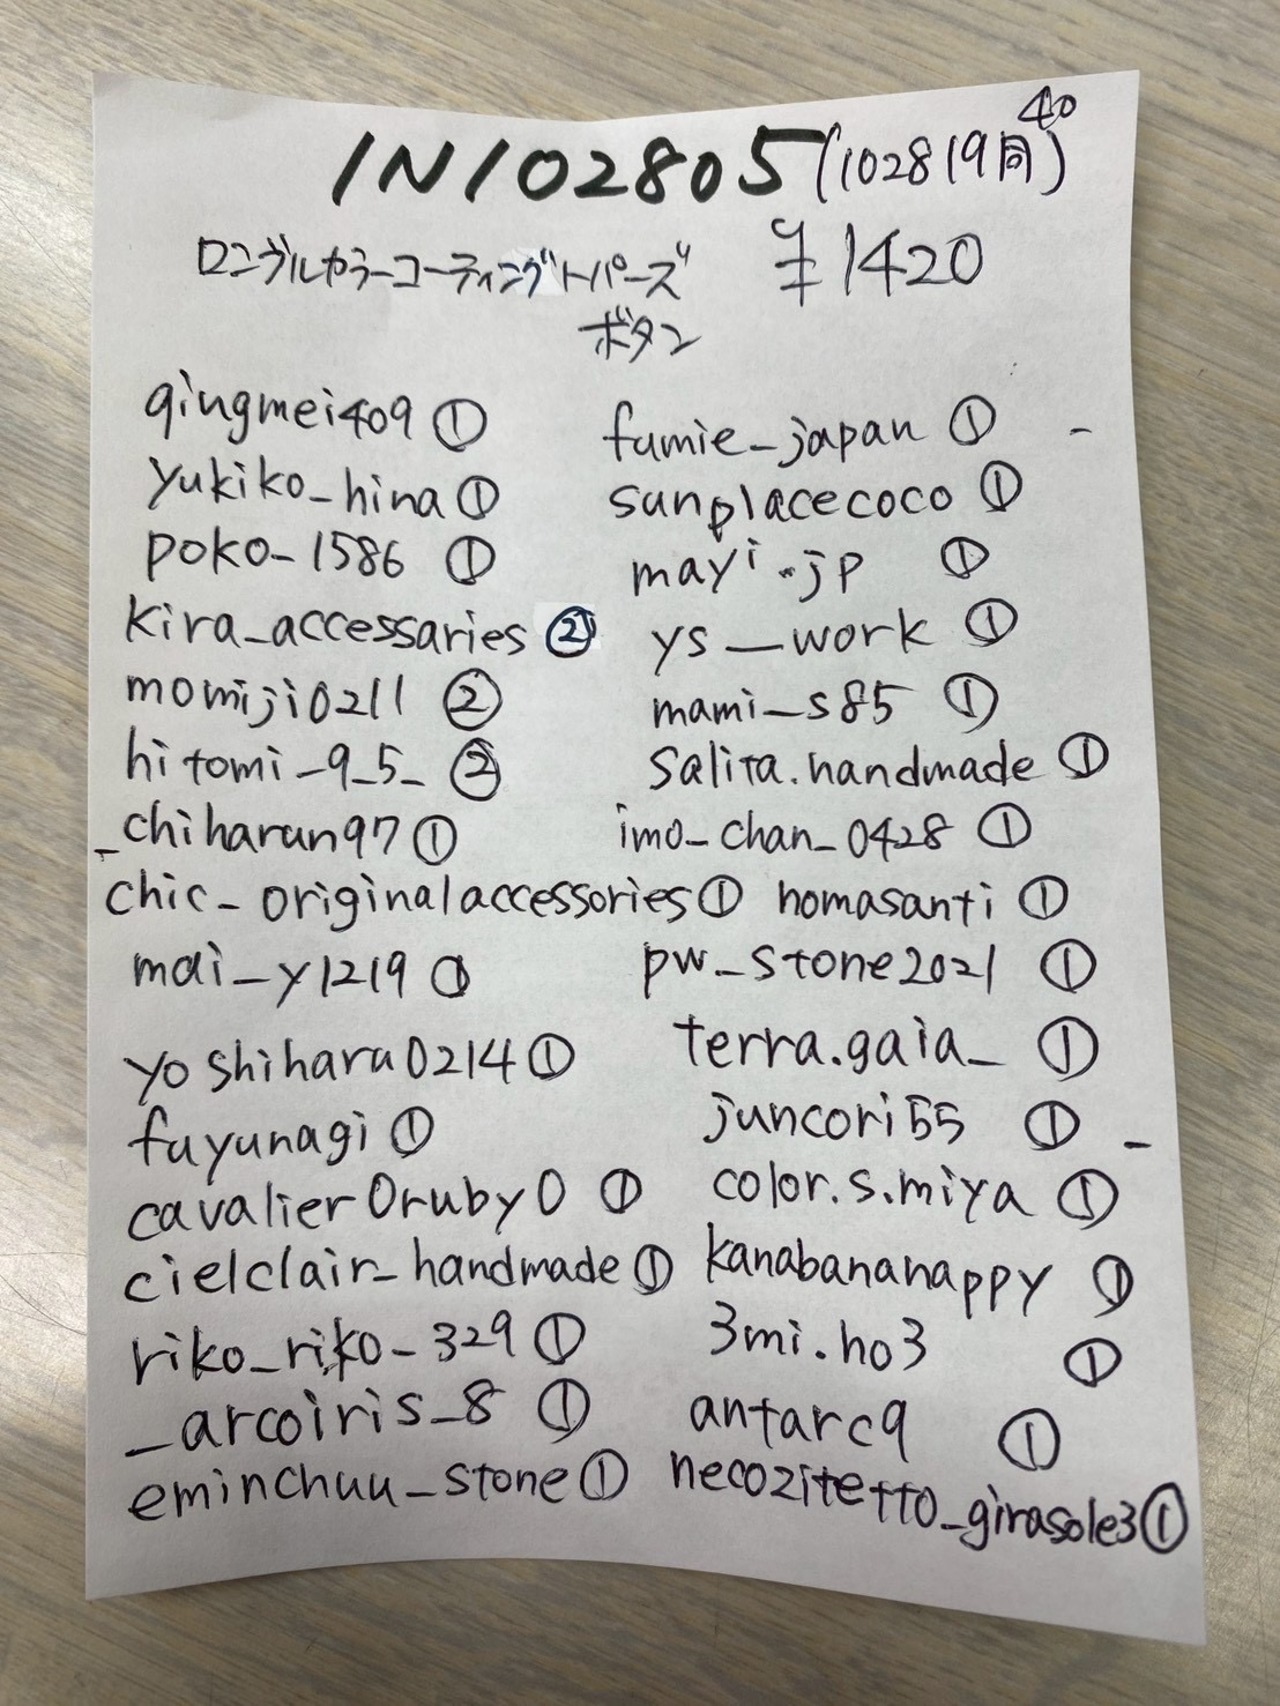 40
IN102805 (102819同)
ロンデルカラーコーティングトパーズ ¥1420
ボタン
qingmei409 ① fumie_japan ①
yukiko_hina ① sunplacecoco ①
poko-1586 ① mayi.jp ①
kira_accessaries ② ys__work ①
momiji0211 ② mami_s85 ①
hitomi_9_5_ ② salita.handmade ①
_chiharun97 ① imo_chan_0428 ①
chic_originalaccessories ① homasanti ①
mai_y1219 ① pw_stone2021 ①
yoshiharu0214 ① terra.gaia_ ①
fuyunagi ① juncori55 ①
cavalier0ruby0 ① color.s.miya ①
cielclair_handmade ① kanabananappy ①
riko_riko_329 ① 3mi.ho3 ①
_arcoiris_8 ① antarc9 ①
eminchuu_stone ① necozitetto_girasole3 ①